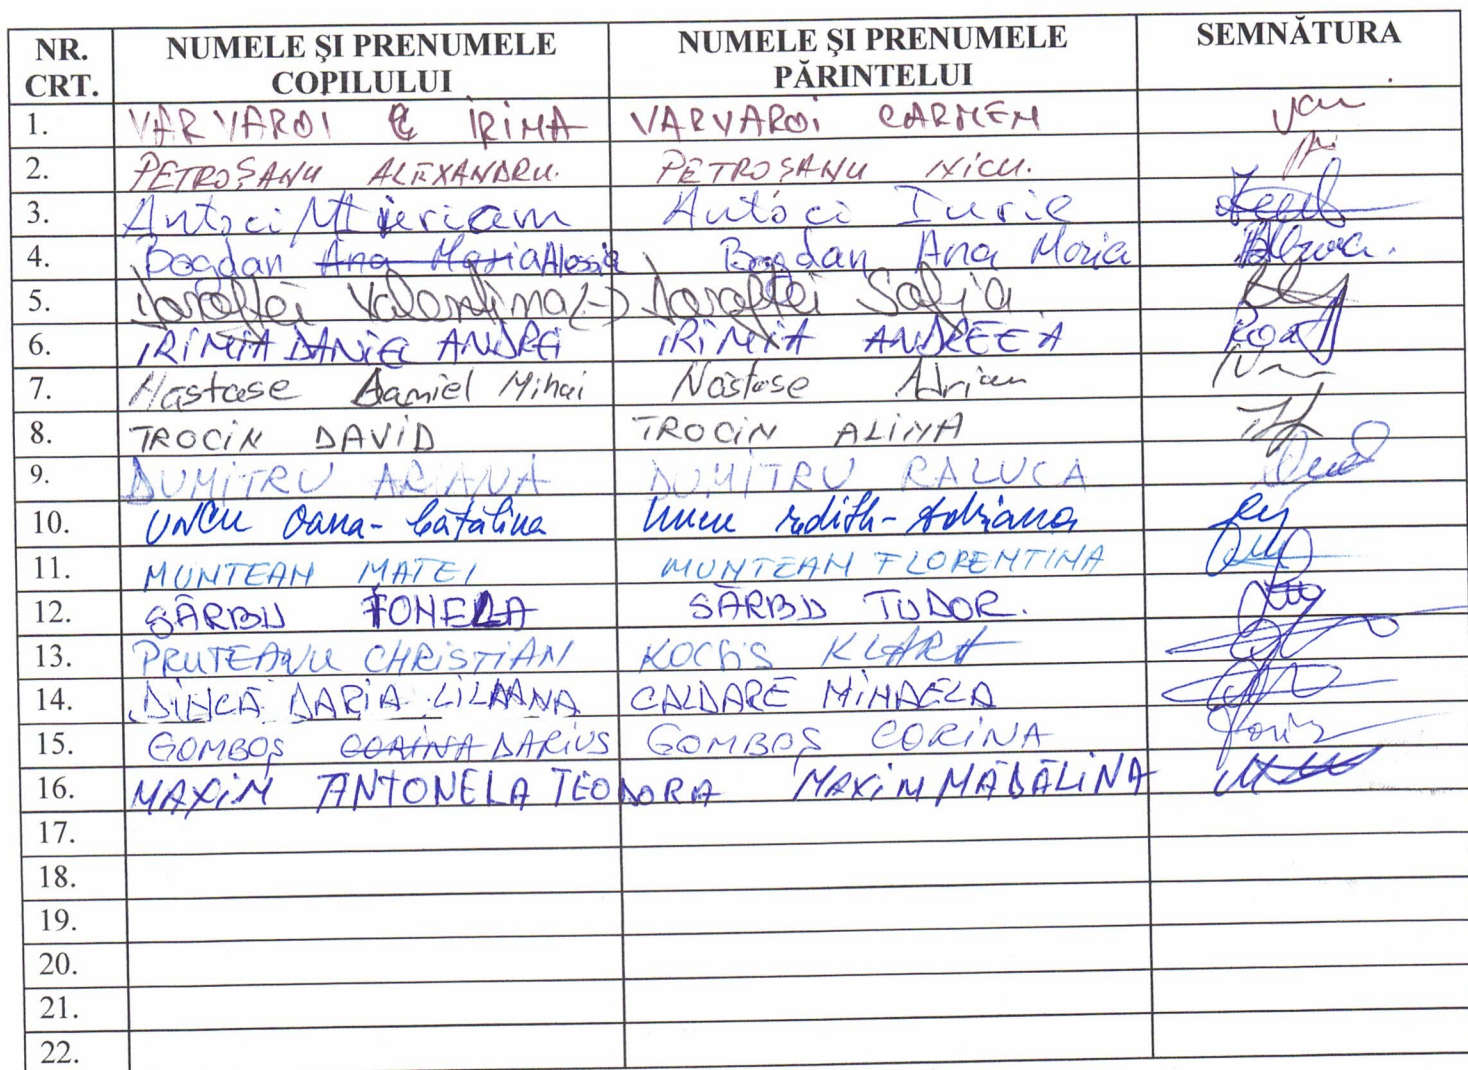 NR. CRT. NUMELE ŞI PRENUMELE COPILULUI NUMELE ŞI PRENUMELE PĂRINTELUI SEMNĂTURA
1. VARVAROI IRINA VARVAROI CARMEN
2. PETROŞANU ALEXANDRU. PETROŞANU NICU.
3. Antoci Miericam Antoci Iurie
4. Bogdan Ana Maria Alessia Bogdan Ana Maria
5. Valentina Sofia
6. IRIMIA DANIEL ANDREI IRIMIA ANDREEA
7. Nastase Daniel Mihai Nastase Adrian
8. TROCIN DAVID TROCIN ALINA
9. DUMITRU ARIANA DUMITRU RALUCA
10. UNCU Oana-Cătălina Uncu Edith-Adriana
11. MUNTEAN MATEI MUNTEAN FLORENTINA
12. SÂRBU IONELA SÂRBU TUDOR.
13. PRUTEANU CHRISTIAN KOCSIS KLARA
14. DINCĂ DARIA LILIANA CALDARE MIHAELA
15. GOMBOŞ CORINA DARIUS GOMBOŞ CORINA
16. MAXIM ANTONELA TEODORA MAXIM MĂDĂLINA
17.
18.
19.
20.
21.
22.